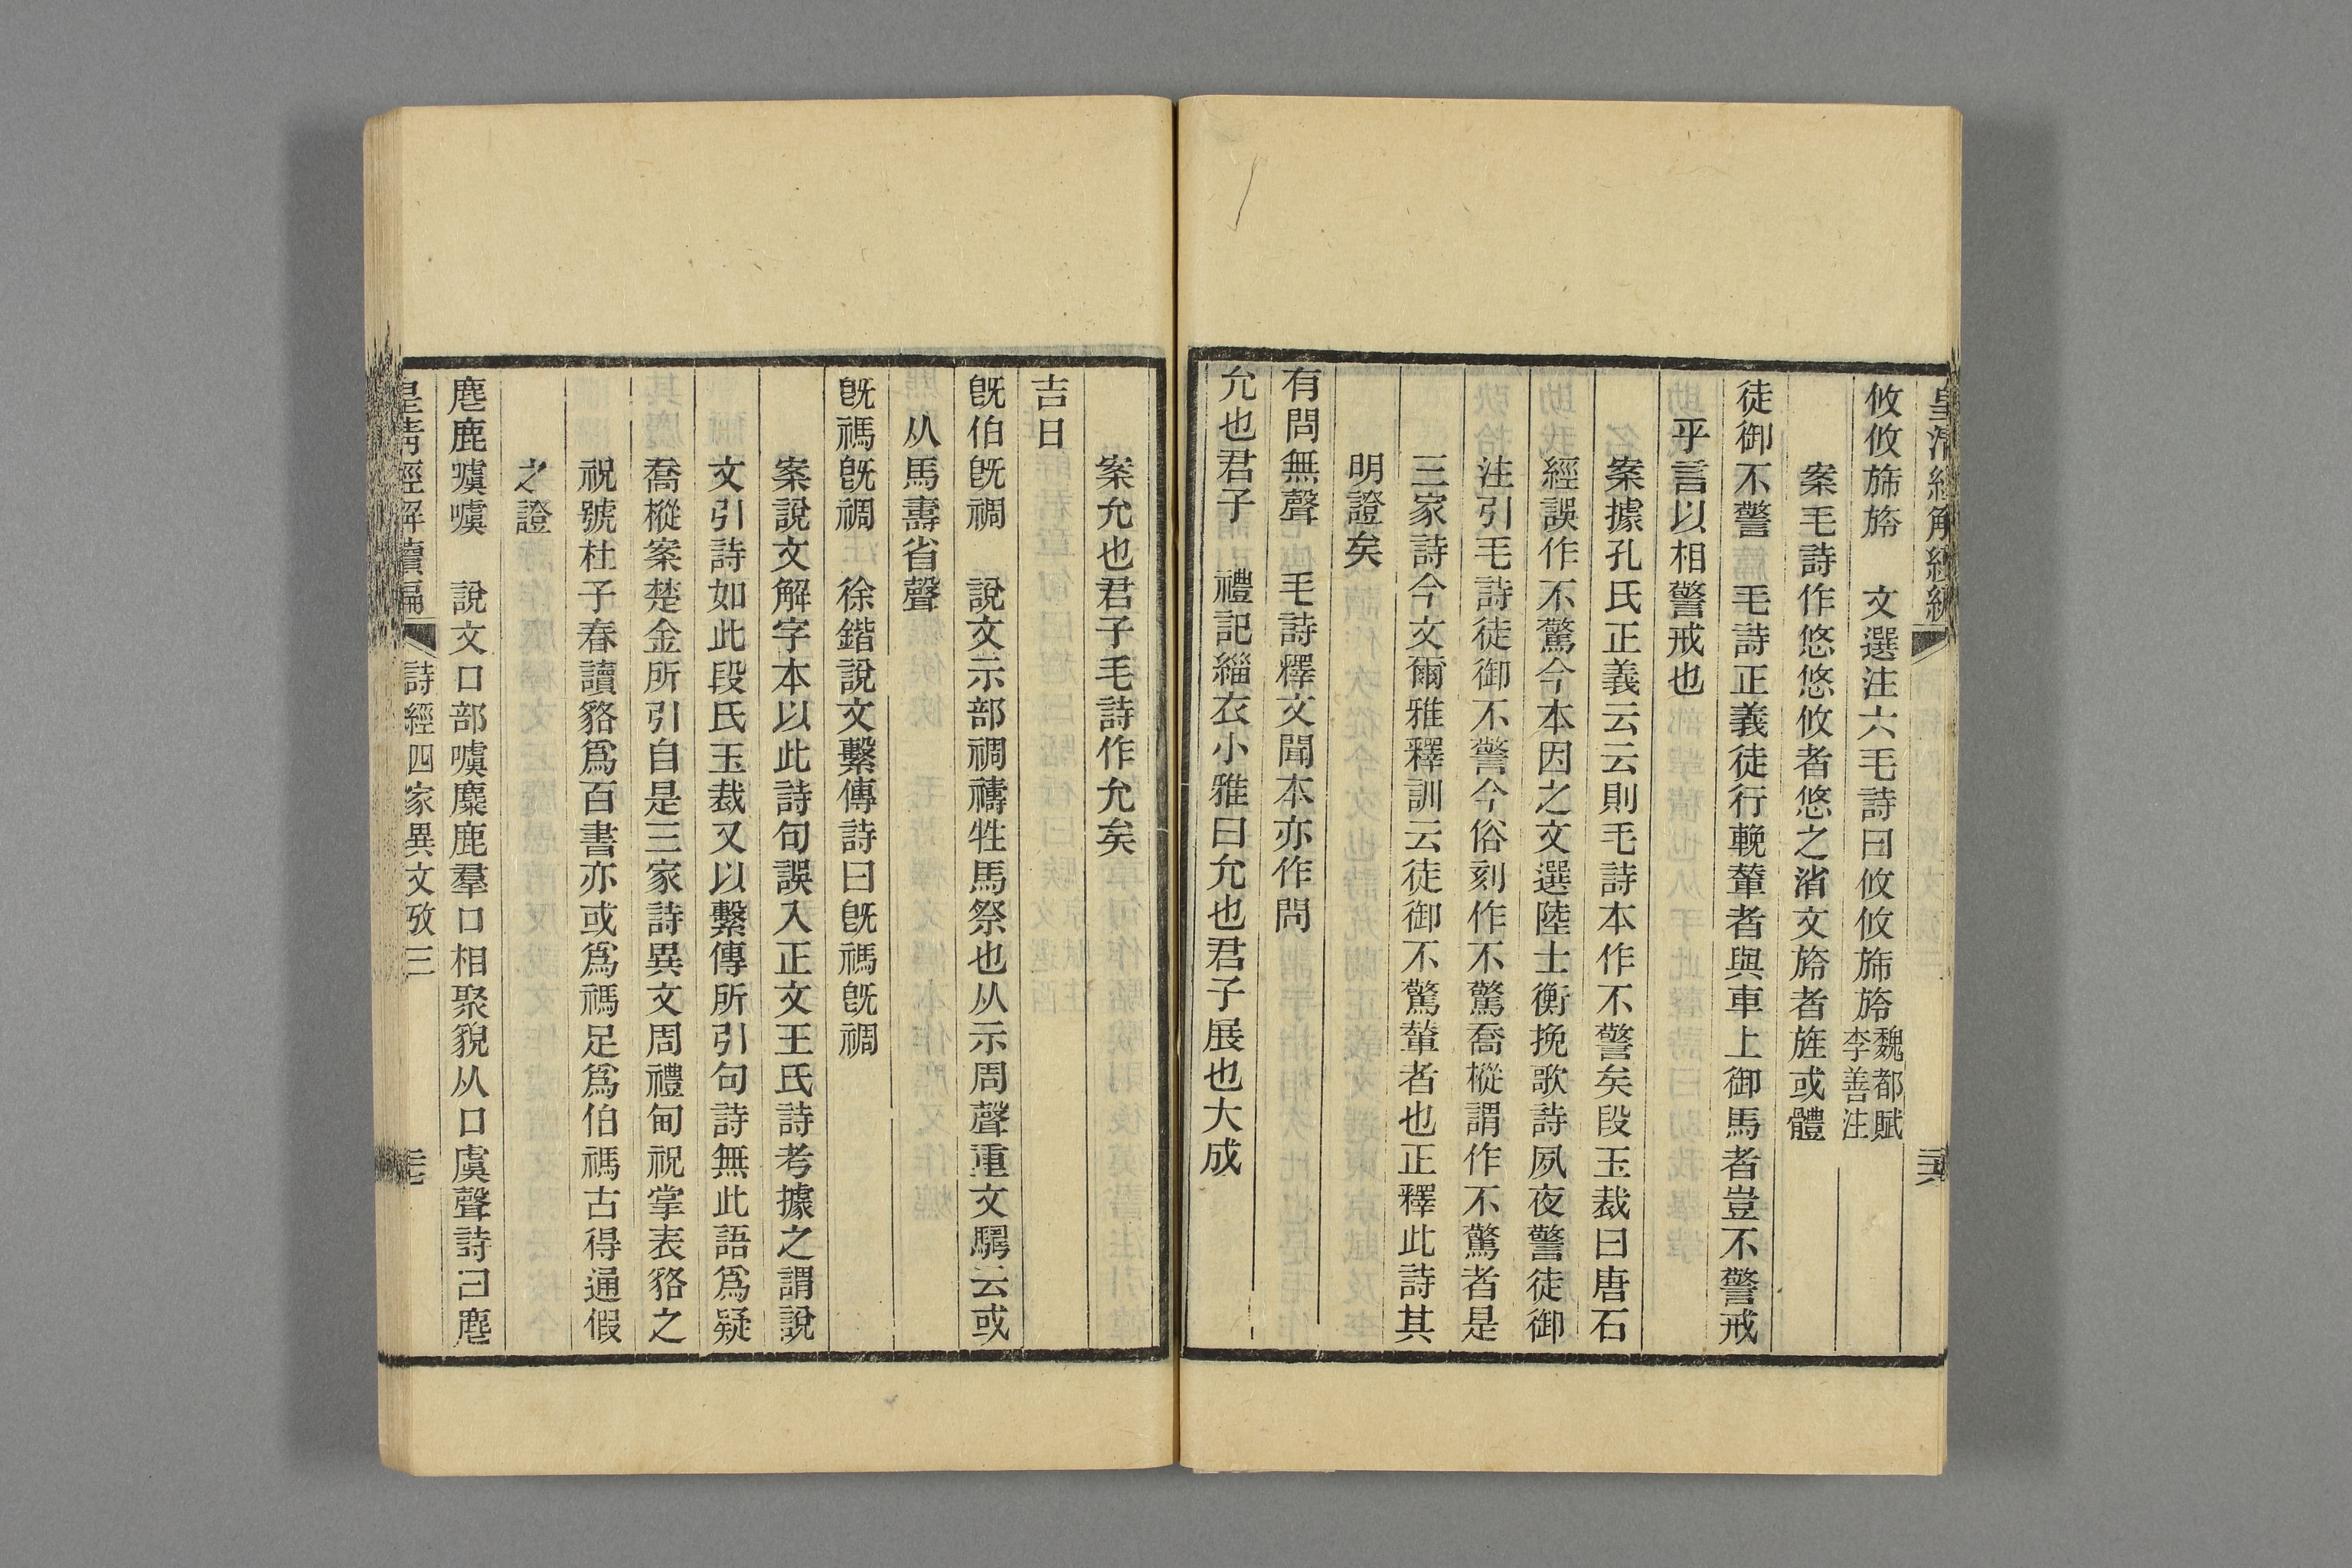 皇清經解續
二六
攸攸旆旍　文選注六毛詩曰攸攸旆旍魏都賦李善注
案毛詩作悠悠攸者悠之渻文旍者旌或體
徒御不警　毛詩正義徒行輓輦者與車上御馬者豈不警戒
乎言以相警戒也
案據孔氏正義云云則毛詩本作不警矣段玉裁曰唐石
經誤作不驚今本因之文選陸士衡挽歌詩夙夜警徒御
注引毛詩徒御不警今俗刻作不驚喬樅謂作不驚者是
三家詩今文爾雅釋訓云徒御不驚輦者也正釋此詩其
明證矣
有問無聲　毛詩釋文聞本亦作問
允也君子　禮記緇衣小雅曰允也君子展也大成
案允也君子毛詩作允矣
吉日
旣伯旣禂　說文示部禂禱牲馬祭也从示周聲重文騳云或
从馬壽省聲
旣禡旣禂　徐鍇說文繫傳詩曰旣禡旣禂
案說文解字本以此詩句誤入正文王氏詩考據之謂說
文引詩如此段氏玉裁又以繫傳所引句詩無此語爲疑
喬樅案楚金所引自是三家詩異文周禮甸祝掌表貉之
祝號杜子春讀貉爲百書亦或爲禡足爲伯禡古得通假
之證
麀鹿噳噳　說文口部噳麋鹿羣口相聚貌从口虞聲詩曰麀
皇清經解續編
詩經四家異文攷三